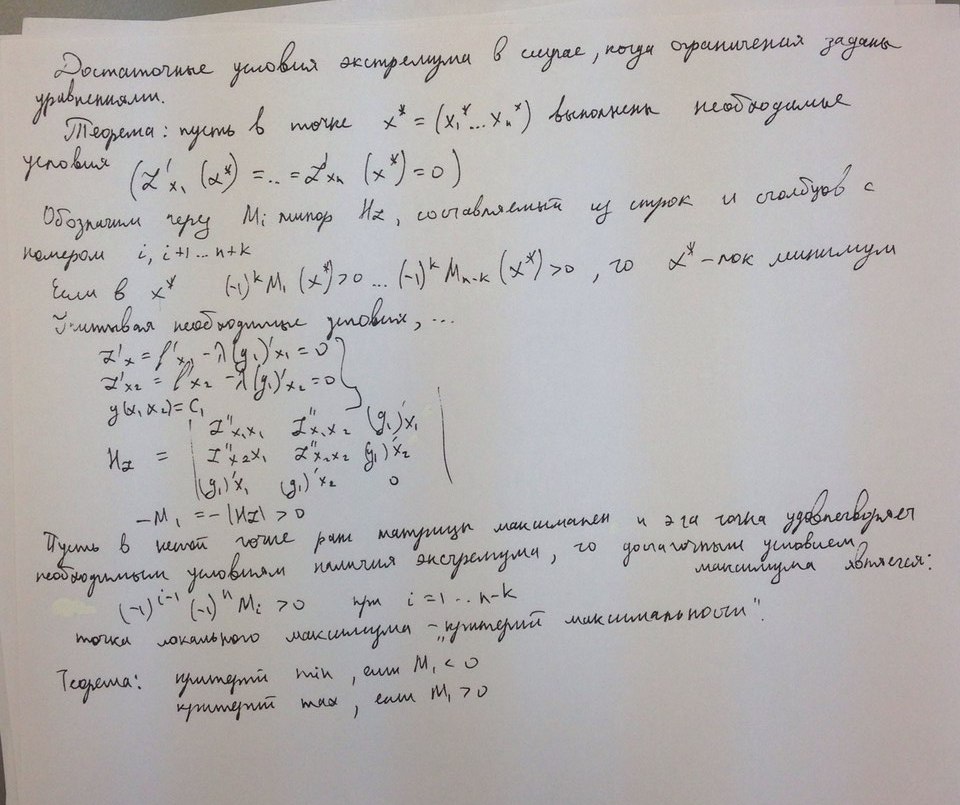 Достаточные условия экстремума в случае, когда ограничения заданы
уравнениями.
Теорема: пусть в точке x* = (x₁*... xₙ*) выполнены необходимые
условия (L'x₁ (x*) = .. = L'xₙ (x*) = 0)
Обозначим через Mi минор HL, составляемый из строк и столбцов с
номером i, i+1 ... n+k
Если в x* (-1)ᵏ M₁ (x*) > 0 ... (-1)ᵏ Mₙ₋ₖ (x*) > 0, то x* - лок минимум
Учитывая необходимые условия, ...
L'x₁ = f'x₁ - λ(g₁)'x₁ = 0
L'x₂ = f'x₂ - λ(g₁)'x₂ = 0
g(x₁ x₂) = C₁
L''x₁x₁ L''x₁x₂ (g₁)'x₁
HL = L''x₂x₁ L''x₂x₂ (g₁)'x₂
(g₁)'x₁ (g₁)'x₂ 0
-M₁ = -|HL| > 0
Пусть в некой точке ранг матрицы максимален и эта точка удовлетворяет
необходимым условиям наличия экстремума, то достаточным условием
максимума является:
(-1)ⁱ⁻¹ (-1)ⁿ Mi > 0 при i = 1 .. n-k
точка локального максимума - "критерий максимальности".
Теорема: критерий min, если M₁ < 0
критерий max, если M₁ > 0